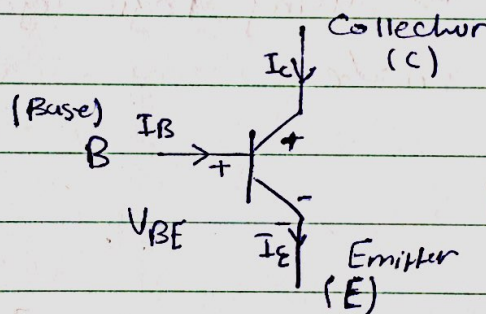 Collector
(C)
Ic
(Base)
IB
B
+
+
-
VBE
IE
Emitter
(E)